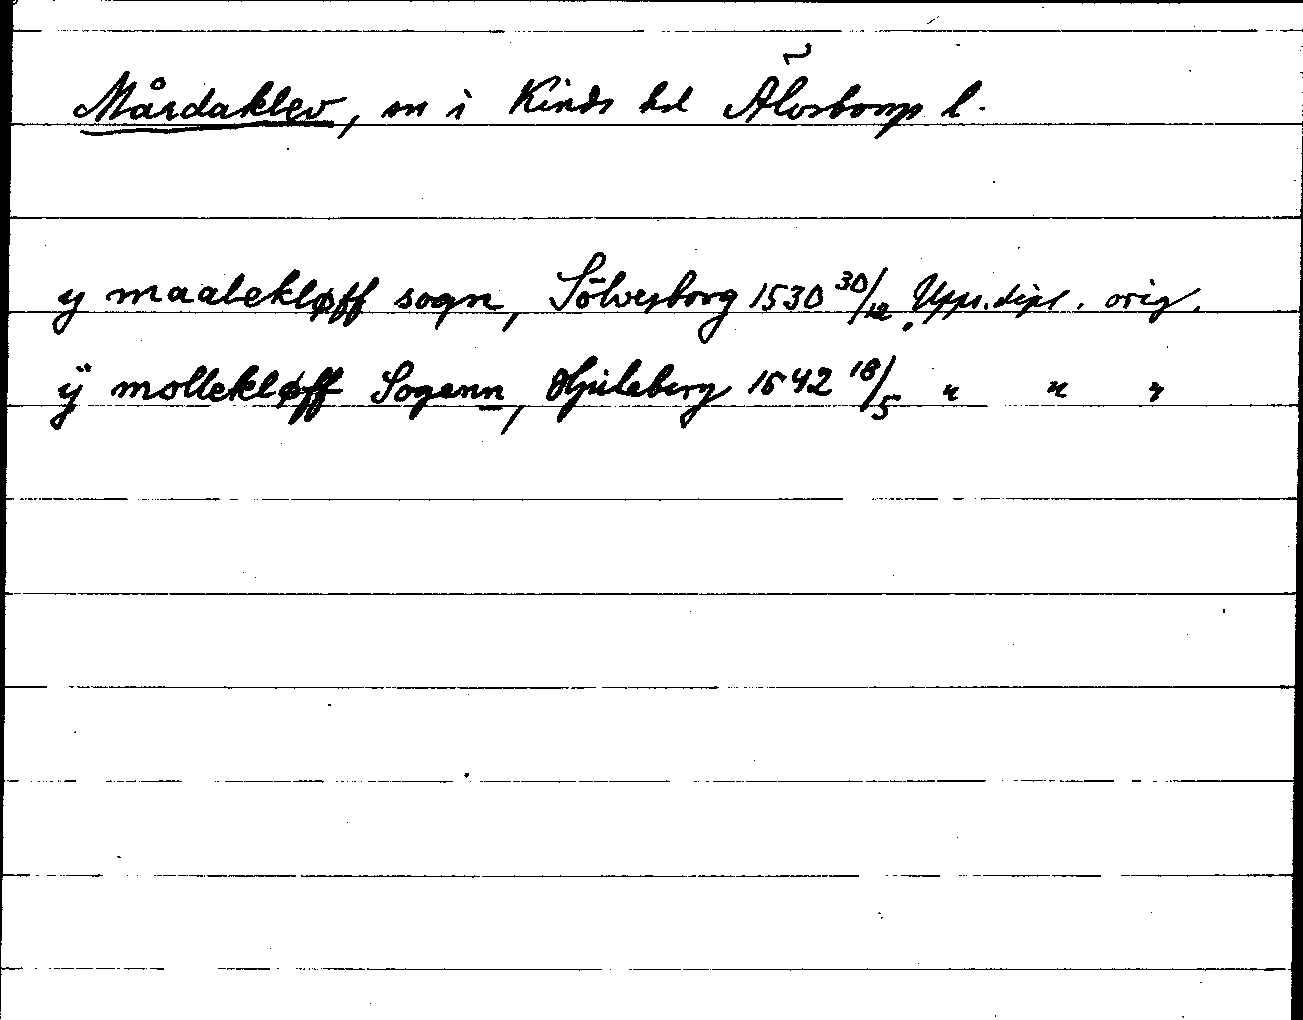 Mårdaklev, sn i Kinds hd Älvsborgs l.
y maalekløff sogn, Sölvesborg 1530 30/12. Upps. dipl. orig.
ÿ mollekløff Sogenn, Hjuleberg 1542 18/5 " " "